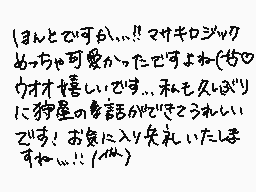 ほんとですか、、、!! マサキロジック
めっちゃ可愛かったですよね(甘♡
ウオオ嬉しいです... 私も久しぶり
に狩屋の会話ができてうれしい
です! お気に入り失礼いたしま
すね、、、!!